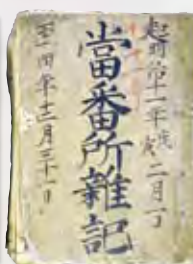 起明治十一年戊寅二月一日
當番所雜記
至十四年十二月三十一日